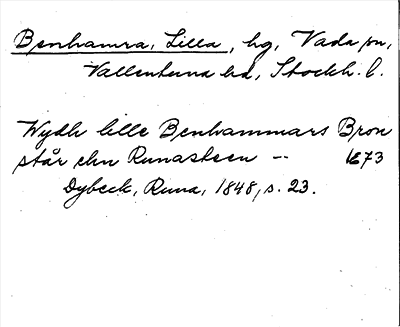 Benhamra, Lilla, hg, Vada sn,
Vallentuna hd, Stockh. l.
Wydh lille Benhammars Bron
står ehn Runasteen -- 1673
Dybeck, Runa, 1848, s. 23.